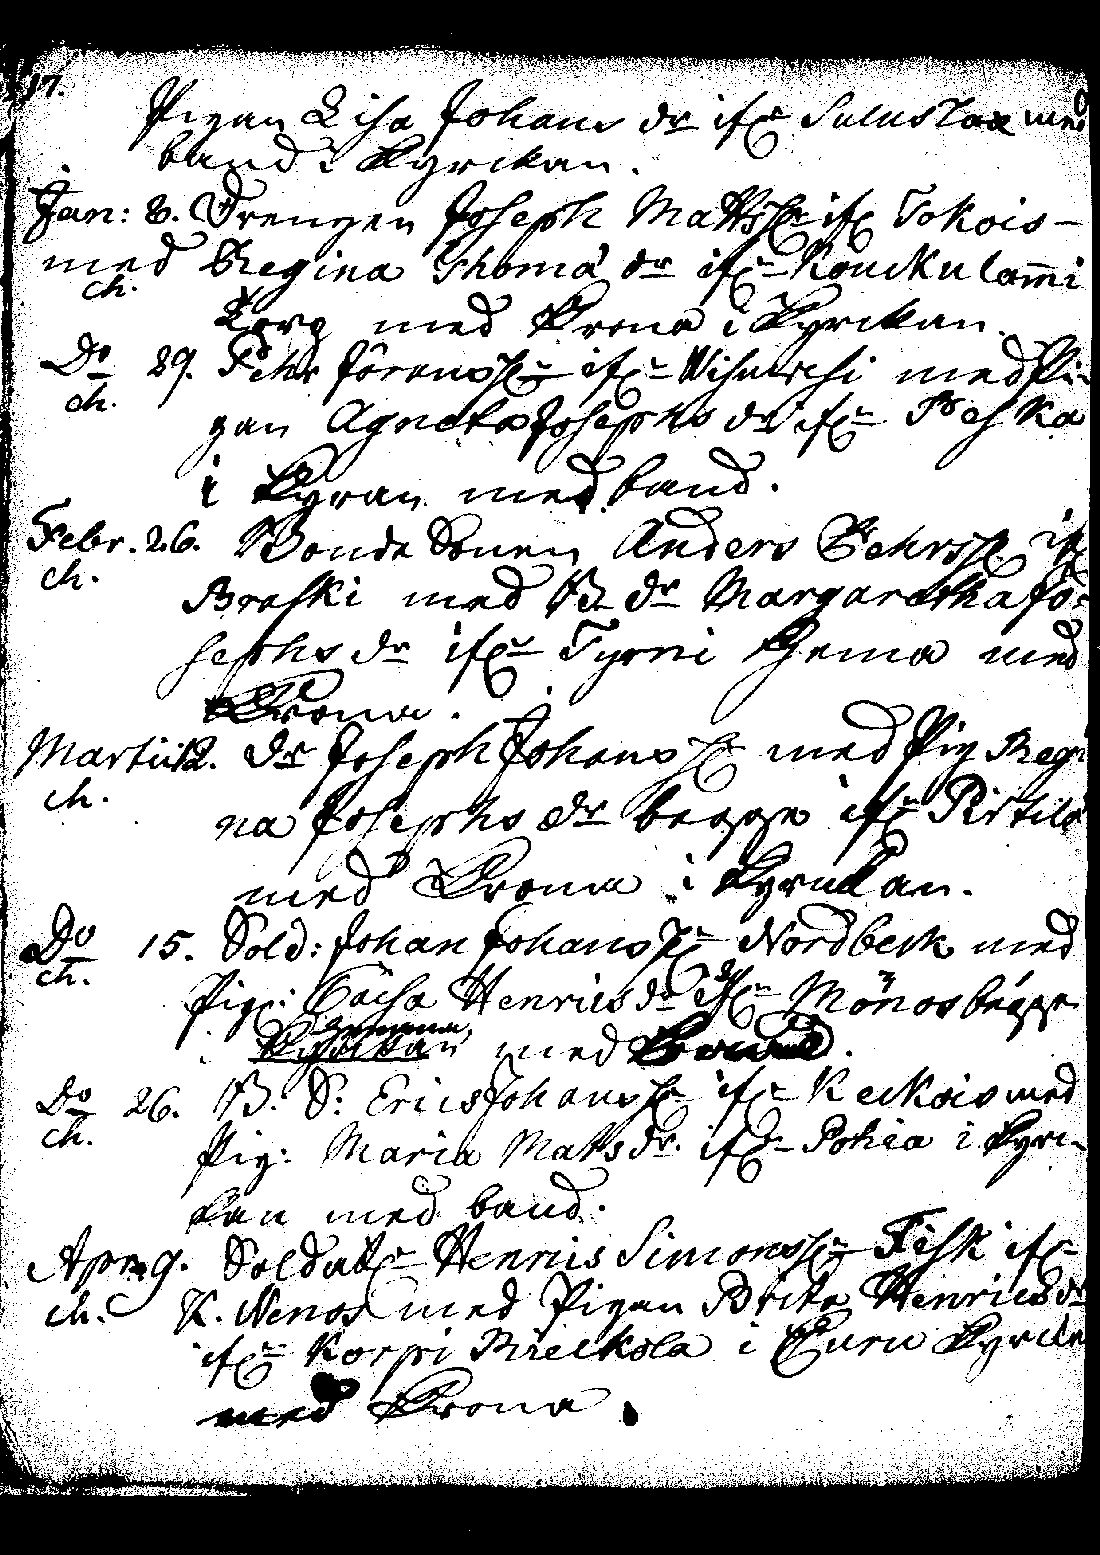 17.
Pigan Lisa Johans dr ifr Sulustax med
band i Kyrckan.
Jan: 8. Drengen Joseph Mattsson ifr Tokois
med Regina Thomæ dr ifr Kouckulammi
ch.
Torp med Krona i Kyrckan.
Do 29. Pehr Jöransson ifr med Pi-
ch.
gan Agneta Josephs dr ifr
i Kyran med band.
Febr. 26. Bonde Sonen Anders Pehrsson ifr
ch.
Braski med B. dr Margaretha Jo-
sephs dr ifr Tyrni hema med
Krona.
Martii 12. dr Joseph Johansson med Pig Regi
ch.
na Josephs dr begge ifr Pirtilä
med Krona i Kyrckan.
Do 15. Sold: Johan Johansson Nordbeck med
ch.
Pig: Caisa Henrics dr ifr Mönos begge
med
Do 26. B. S: Eric Johansson ifr Keckois med
ch.
Pig: Maria Matts dr. ifr Pohia i Kyrc-
kan med band.
Apr. 9. Soldat Henric Simonsson Fisk ifr
ch. K. Nenos med Pigan Brita Henrics dr
ifr Korpi Rieckola i Euru Kyrcka
med Krona.